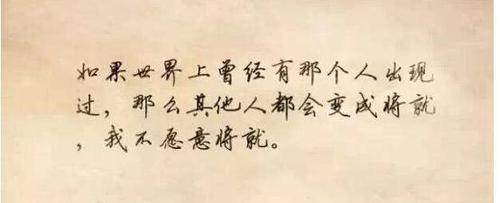 如果世界上曾经有那个人出现
过，那么其他人都会变成将就
，我不愿意将就。